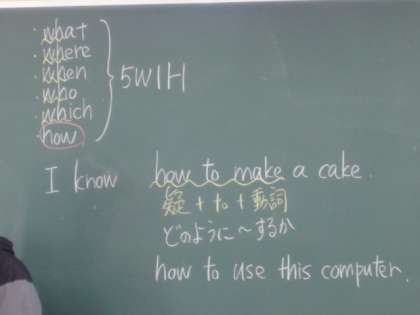 ・what
・where
・when
・who
・which
・how
5W1H
I know how to make a cake.
疑+to+動詞
どのように〜するか
how to use this computer.